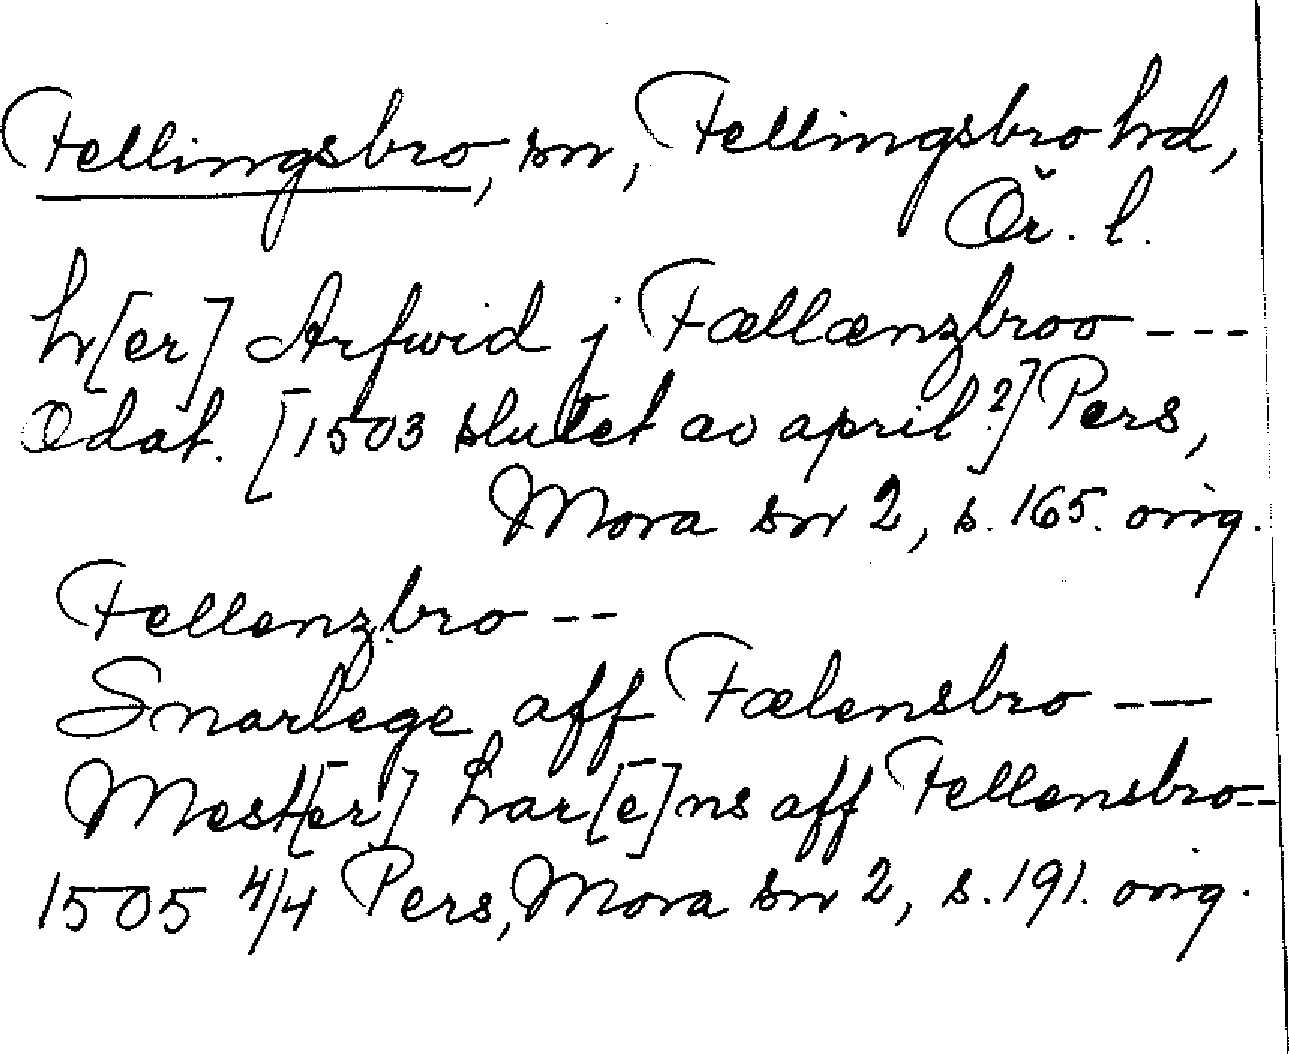 Fellingsbro, sn, Fellingsbro hd,
Ör. l.
h[er] Arfwid j Fællænzbroo ---
Odat. [1503 slutet av april?] Pers,
Mora sn 2, s. 165. orig.
Fellenzbro --
Snarlege aff Fælensbro ---
Mest[er] har[e]ns aff Fellensbro--
1505 4/4 Pers, Mora sn 2, s. 191. orig.